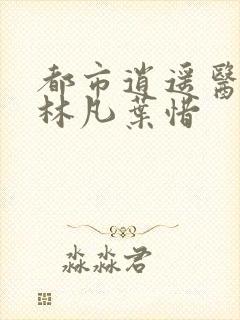 都市逍遥醫
林凡葉惜
淼淼君